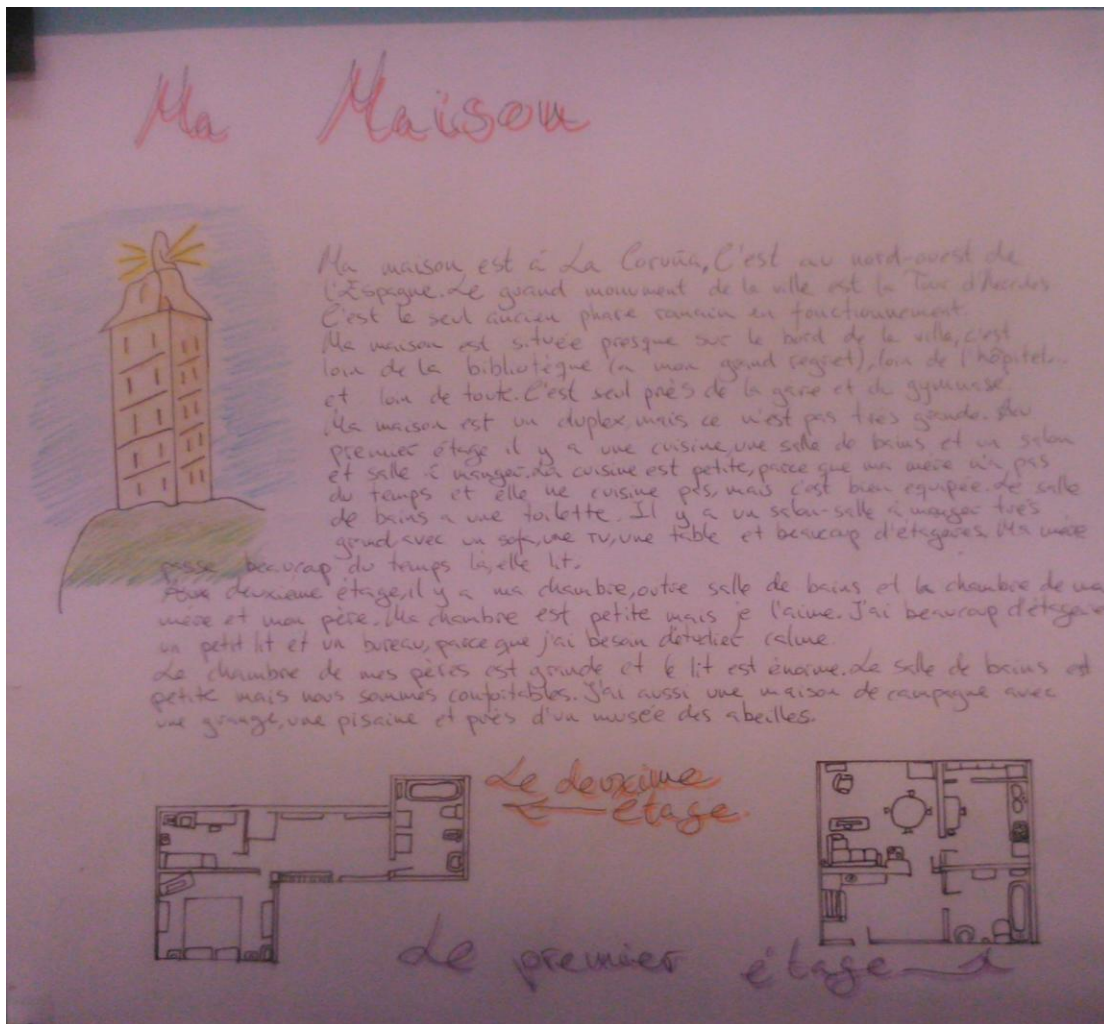 Ma Maison
Ma maison, est à La Coruña, C'est au nord-ouest de
l'Espagne. Le grand monument de la ville est la Tour d'Hercules
C'est le seul ancien phare romain en fonctionnement.
Ma maison est située presque sur le bord de la ville, c'est
loin de la bibliotèque (a mon grand regret), loin de l'hôpital...
et loin de toute. C'est seul près de la gare et du gymnase.
Ma maison est un duplex, mais ce n'est pas très grande. Au
premier étage il y a une cuisine, une salle de bains et un salon
et salle à manger. La cuisine est petite, parce que ma mère n'a pas
du temps et elle ne cuisine pas, mais c'est bien equipée. Le salle
de bains a une toilette. Il y a un salon-salle a manger très
grand avec un sofa, une TV, une table et beaucop d'étagères. Ma mère
passe beaucoup du temps là, elle lit.
Au deuxième étage, il y a ma chambre, outre salle de bains et la chambre de ma
mère et mon père. Ma chambre est petite mais je l'aime. J'ai beaucoup d'étagère
un petit lit et un bureau, parce que j'ai besan d'etudier calme.
La chambre de mes pères est grande et le lit est énorme. La salle de bains est
petite mais nous sommes confortables. J'ai aussi une maison de campagne avec
une grange, une pisaine et près d'un musée des abeilles.
Le deuxime
étage.
Le premier étage